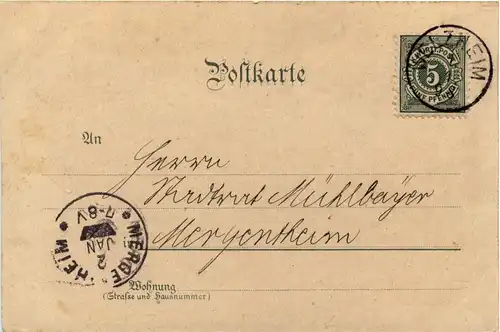 Postkarte
5
An
Herrn
Stadtrat Mühlbayer
Mergentheim
MERGENTHEIM
2
JAN
7-8V
Wohnung
(Straße und Hausnummer)